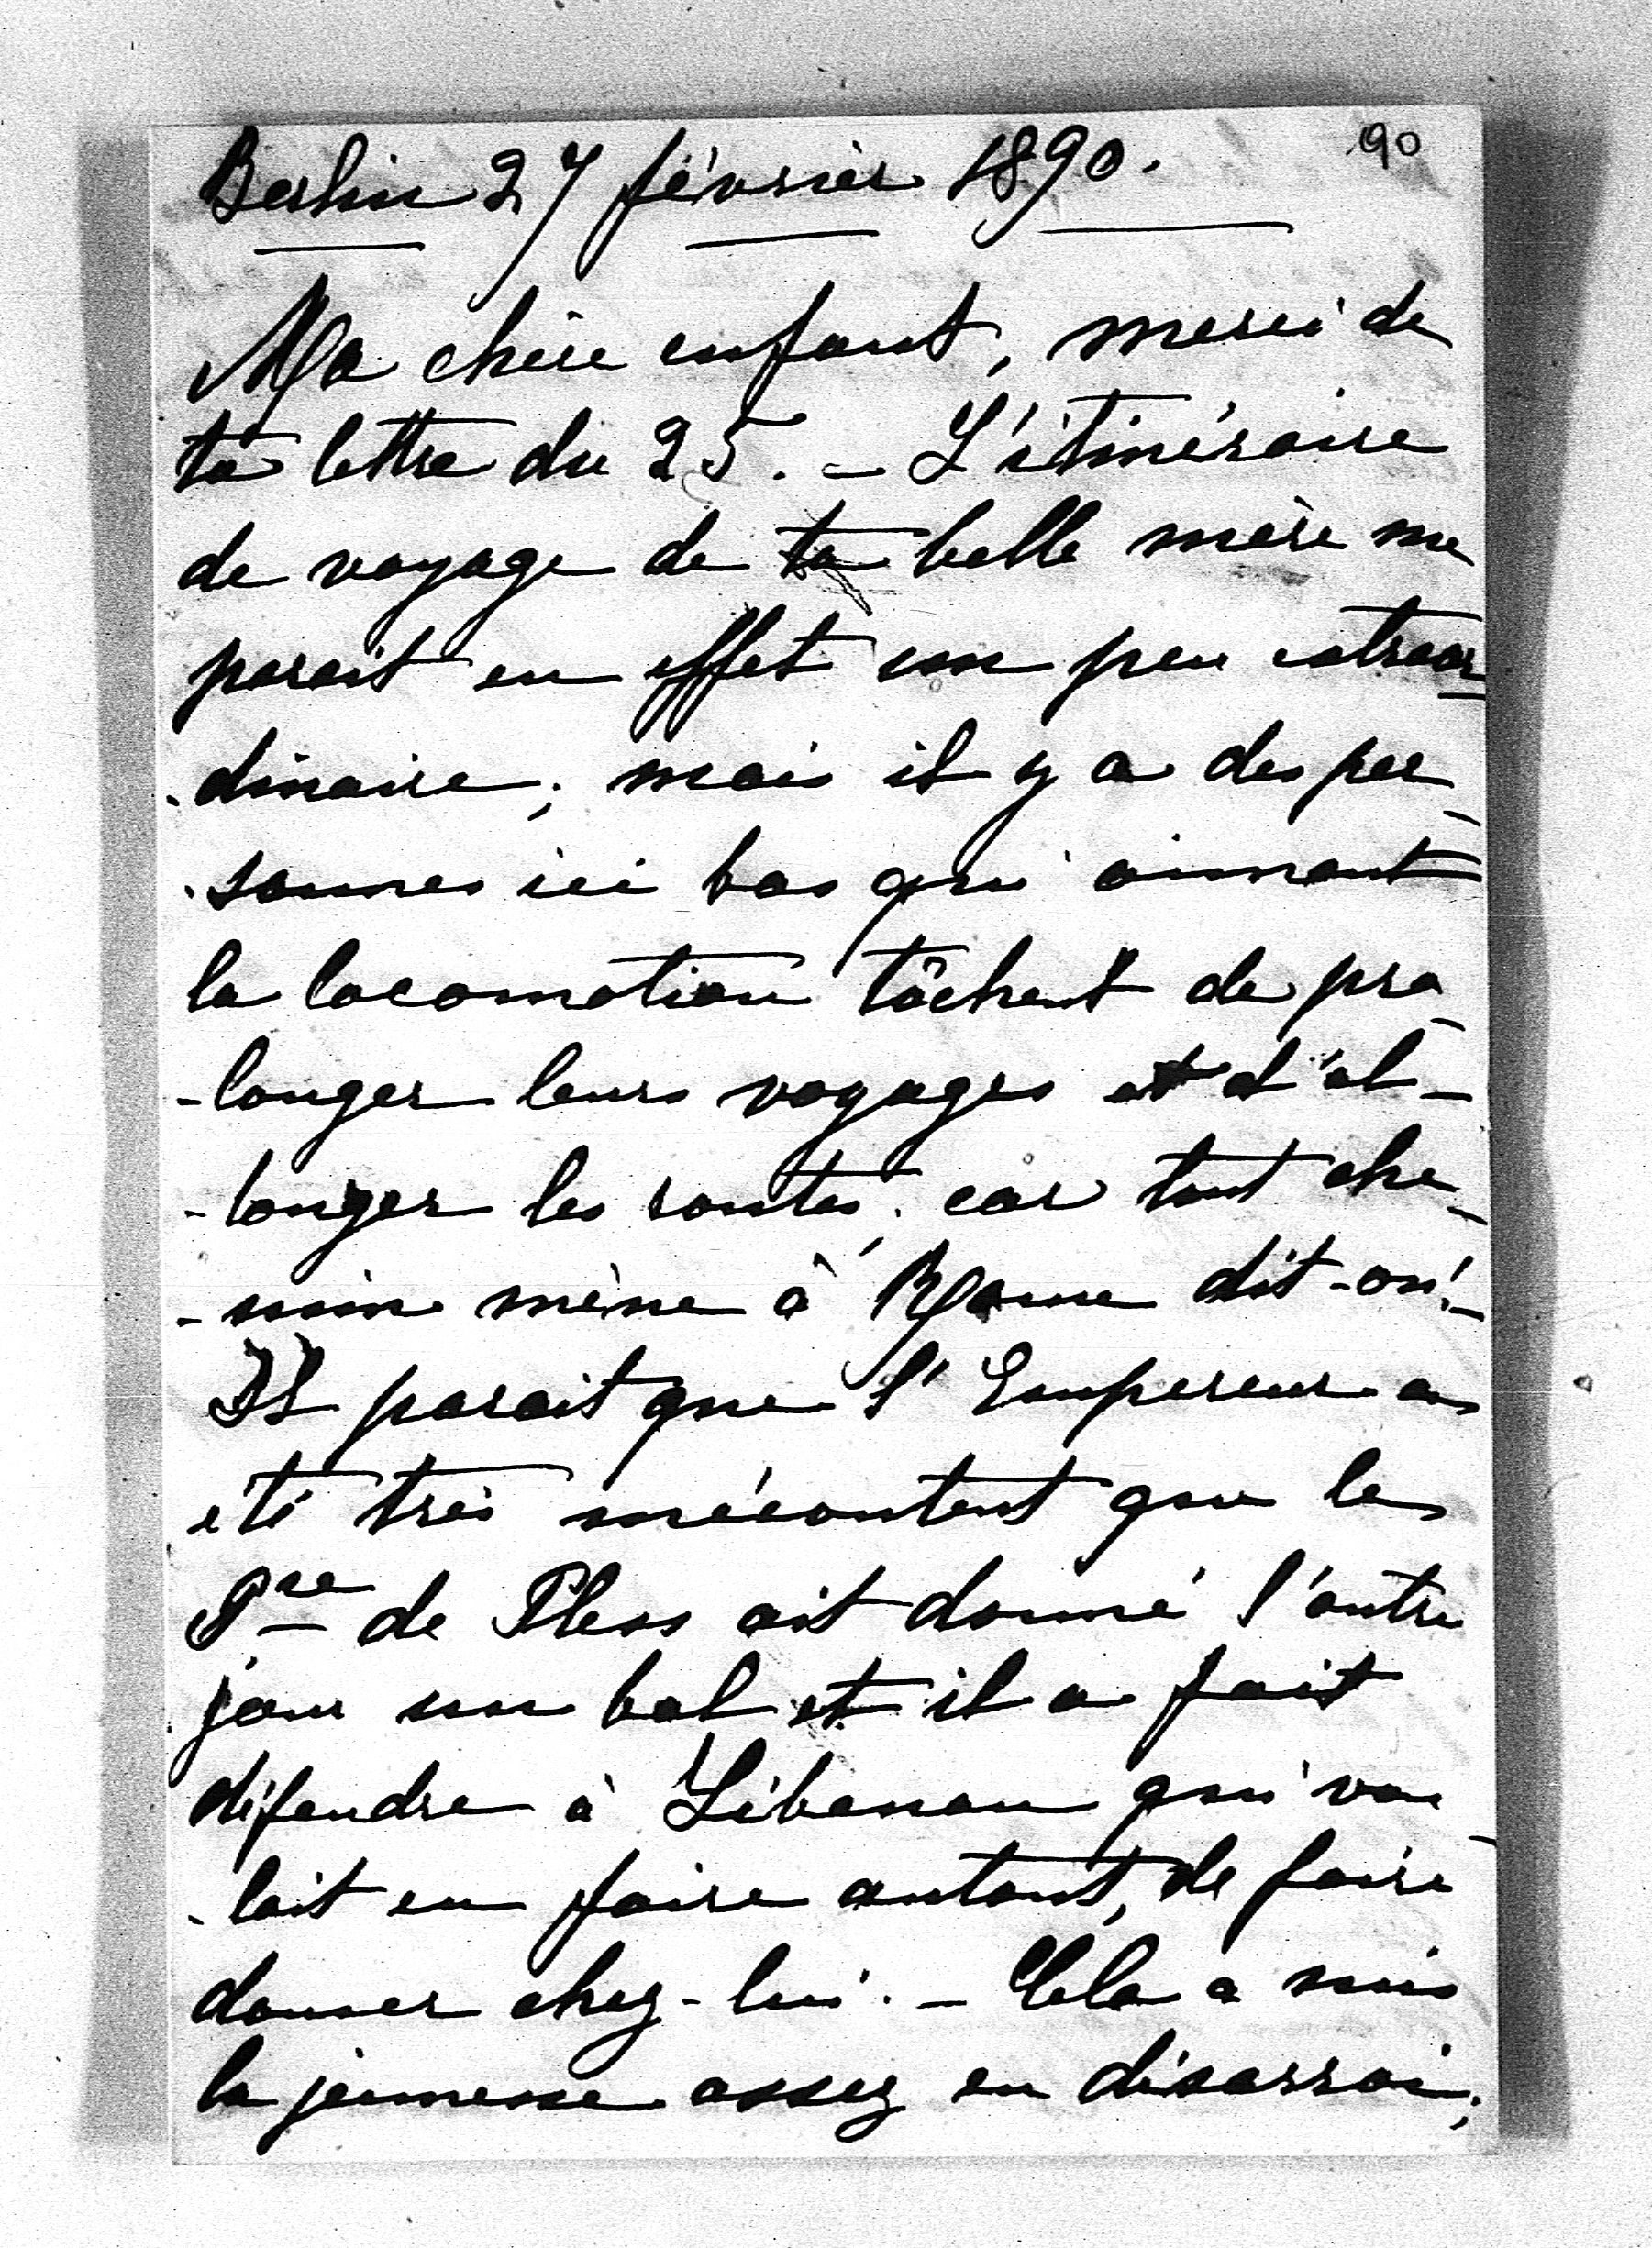 90
Berlin 27 février 1890.
Ma chère enfant, merci de
ta lettre du 25. – L'itinéraire
de voyage de ta belle mère me
parait en effet un peu extraor-
-dinaire; mais il y a des per-
-sonnes ici bas qui aimant
la locomotion tâchent de pro-
-longer leurs voyages et d'al-
-longer les routes, car tout che-
-min mène à Rome dit-on! –
Il parait que l'Empereur a
été très mécontent que le
Pce de Pless ait donné l'autre
jour un bal et il a fait
défendre à Libenau qui vou-
-lait en faire autant, de faire
danser chez-lui. – Cela a mis
la jeunesse assez en désarroi;